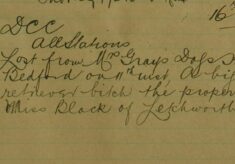 16
DCC
All Stations
Lost from Mrs Grays Dogs
Bedford on 11th inst. A big
retriever bitch the proper
Miss Black of Letchworth